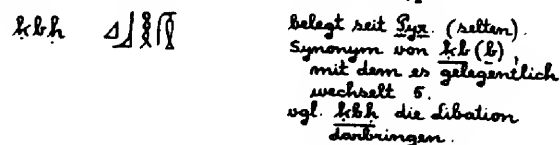 ḳbḥ 𓈎𓃀𓎛 belegt seit Pyr. (selten).
Synonym von ḳb(b),
mit dem es gelegentlich
wechselt
vgl. ḳbḥ die Libation
darbringen.